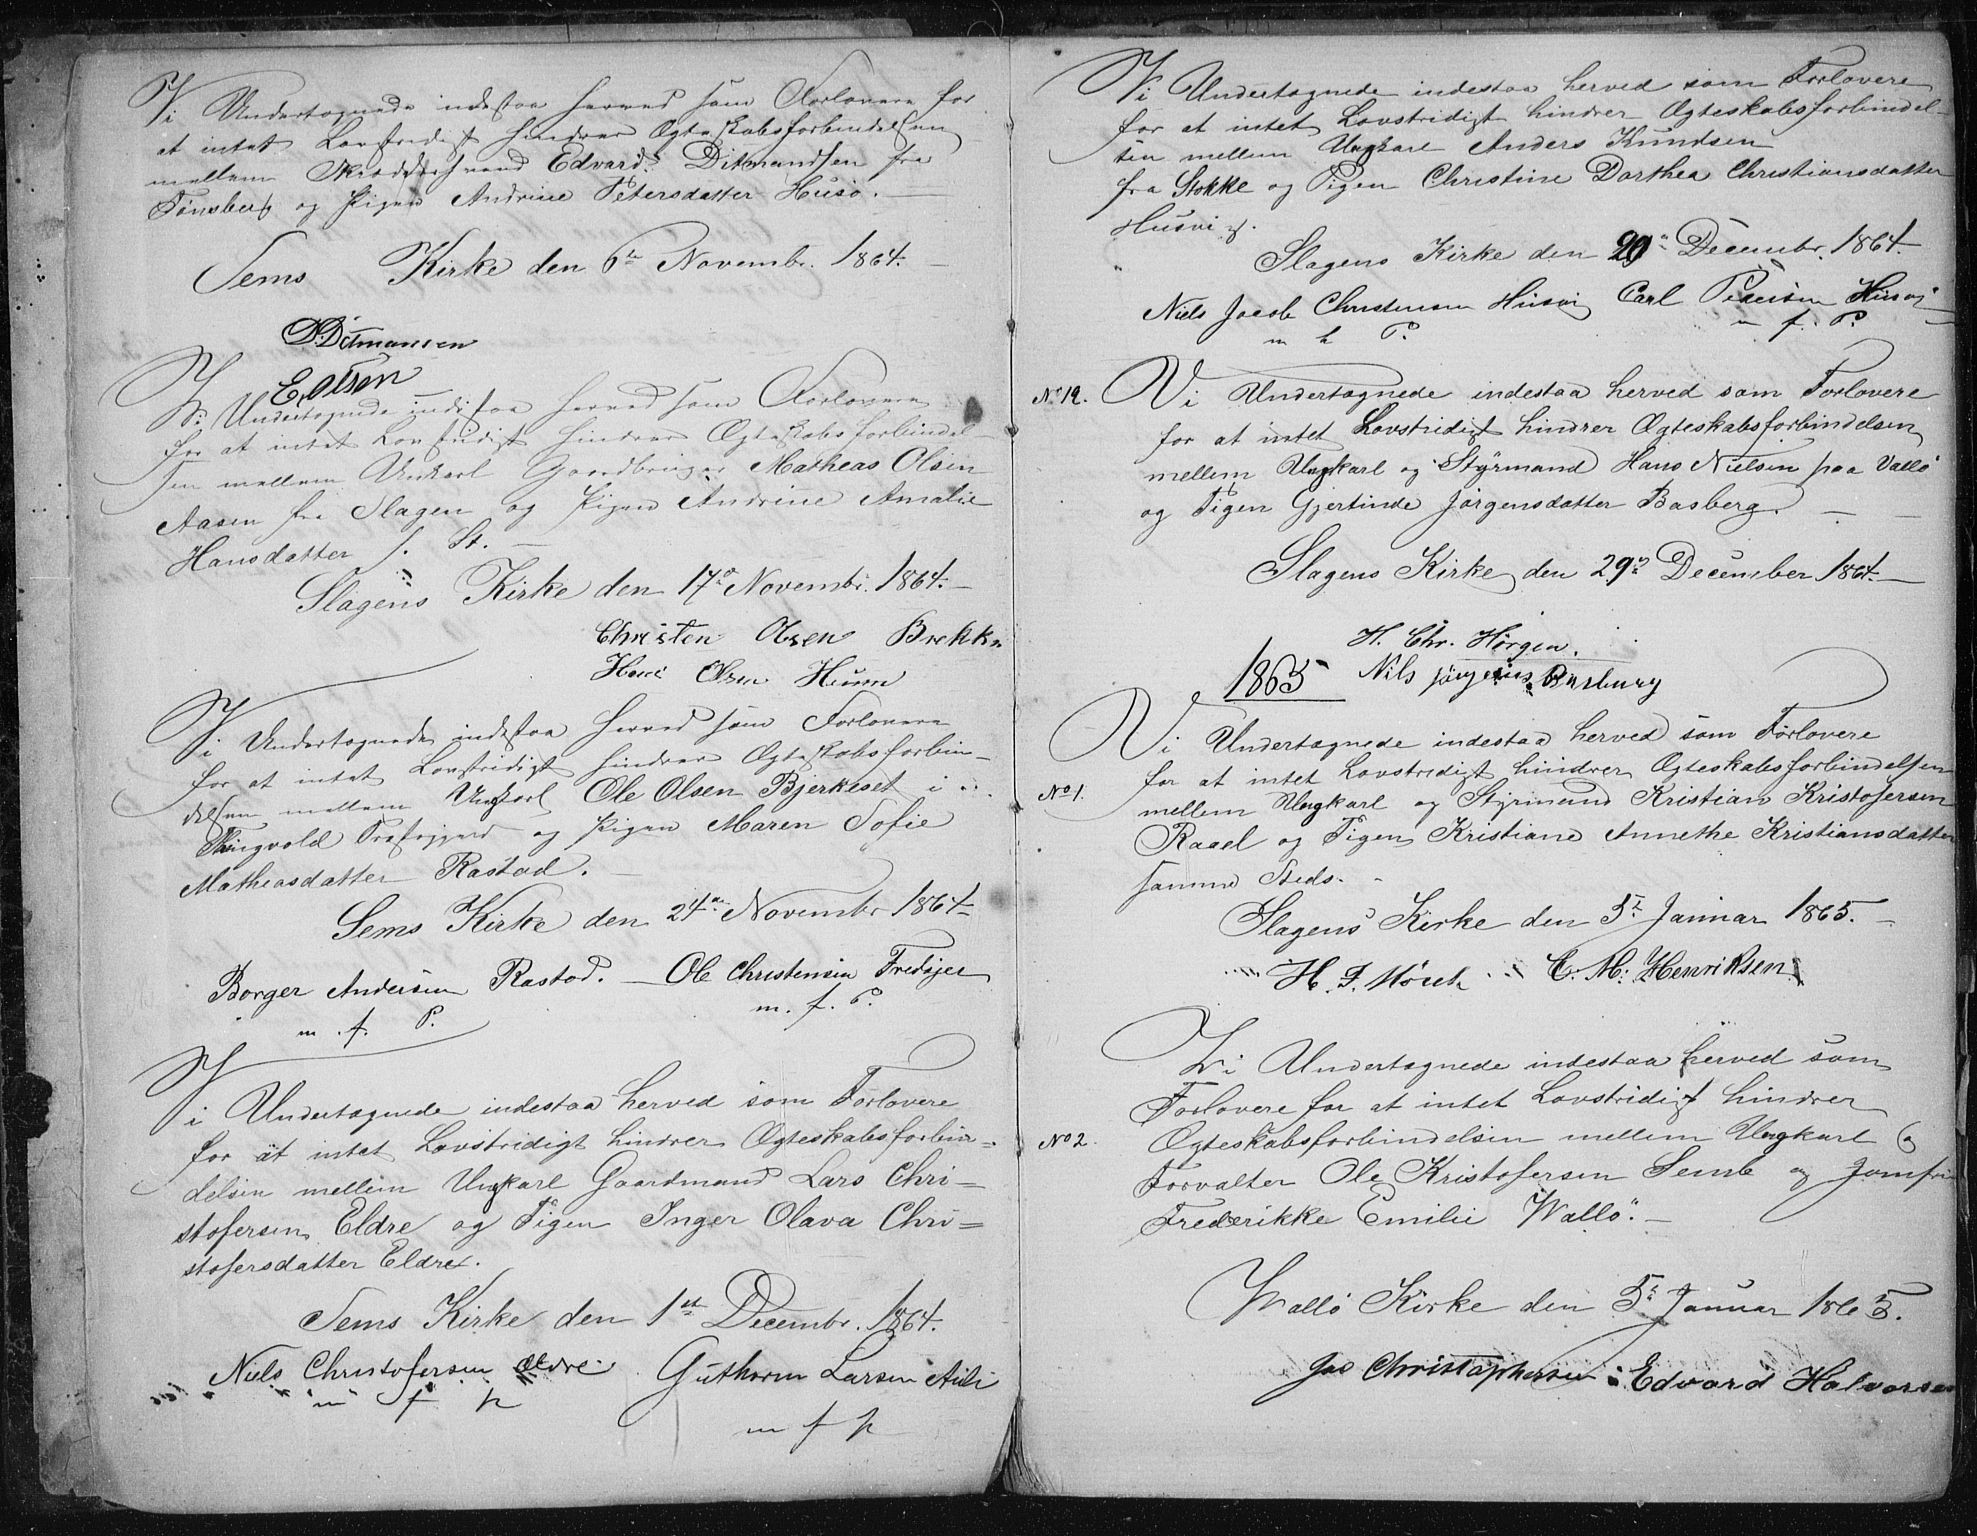 Vi Undertegnede indestaa herved som Forlovere for
at intet Lovstridigt hindrer Ægteskabsforbindelsen
mellem Edvard Ditmandsen fra
Tønsberg og Pigen Andrine Petersdatter Husø. —
Sems Kirke den 6te Novembr. 1864. —
D. Ditmansen
E. Olsen
Vi Undertegnede indestaa herved som Forlovere
for at intet Lovstridigt hindrer Ægteskabsforbindel-
sen mellem Unkarl Gaardbruger Matheas Olsen
Aasen fra Slagen og Pigen Andrine Amalie
Hansdatter f. St. —
Slagens Kirke den 17de Novembr. 1864. —
Christen Olsen Brekke
Olsen
Vi Undertegnede indestaa herved som Forlovere
for at intet Lovstridigt hindrer Ægteskabsforbin-
delsen mellem Ungkarl Ole Olsen Bjerkeset i
Tingvold og Pigen Maren Sofie
Mathiasdatter Rastad. —
Sems Kirke den 24de Novembr 1864 —
Borger Andersen Rastad. — Ole Christensen Fredsjer
m. f. P. m. f. P.
Vi Undertegnede indestaa herved som Forlovere
for at intet Lovstridigt hindrer Ægteskabsforbin-
delsen mellem Ungkarl Gaardmand Lars Chri=
stofersen Eldre og Pigen Inger Olava Chri=
stofersdatter Eldre.
Sems Kirke den 1st Decembr. 1864.
Niels Christofersen Eldre Guthorm Larsen Auli
m f p m f p
Vi Undertegnede indestaa herved som Forlovere
for at intet Lovstridigt hindrer Ægteskabsforbindel-
sen mellem Ungkarl Anders Knudsen
fra Stokke og Pigen Christine Dorthea Christiansdatter
Husvig.
Slagens Kirke den Decembr. 1864
Niels Jacob Christensen Husvig Carl Pedersen Husvig
m f. P.
No 12. Vi Undertegnede indestaa herved som Forlovere
for at intet Lovstridigt hindrer Ægteskabsforbindelsen
mellem Ungkarl og Styrmand Hans Nielsen paa Vallø
og Pigen Gjertinde Jørgensdatter Basberg. —
Slagens Kirke den 29de December 1864. —
H. Chr. Hørgen.
1865 Nils Jørgensen Basberg
Vi Undertegnede indestaa herved som Forlovere
for at intet Lovstridigt hindrer Ægteskabsforbindelsen
No 1. mellem Ungkarl og Styrmand Kristian Kristofersen
Raael og Pigen Kristiane Annethe Kristiansdatter
samme Steds.
Slagens Kirke den 5te Januar 1865. —
H. F. Mørch C. M. Henriksen
Vi Undertegnede indestaa herved som
Forlovere for at intet Lovstridigt hindrer
No 2. Ægteskabsforbindelsen mellem Ungkarl og
Forvalter Ole Kristofersen Semb og Jomfru
Frederikke Emilie Wallø. —
Wallø Kirke den 5te Januar 1865.
Jas Christophersen Edvard Halvorsen